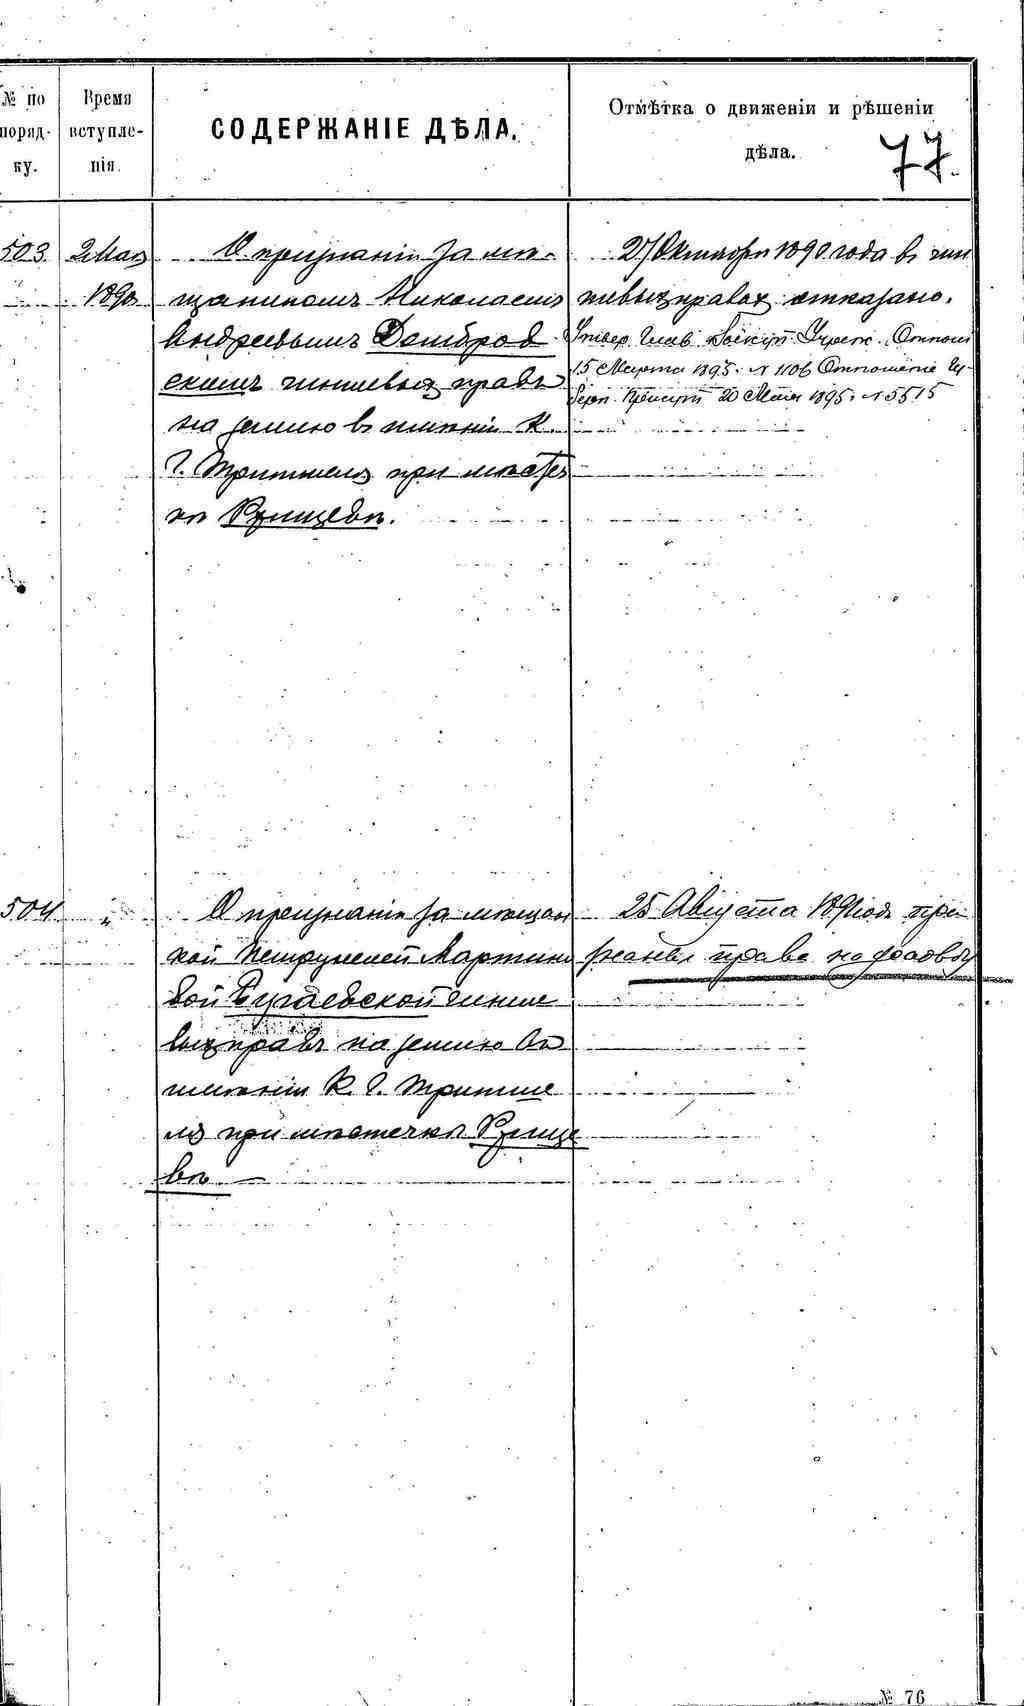 № по поряд- ку.
Время вступле- нія.
СОДЕРЖАНІЕ ДѢЛА.
Отмѣтка о движеніи и рѣшеніи
дѣла.
77.
503. 2 Мая
1890
О признаніи за мѣ-
щаниномъ Николаемъ
Андреевымъ Домбров-
скимъ чиншевыхъ правъ
на землю въ имѣніи К.
Г. Тритшель при мѣстеч-
кѣ Ржищевѣ.
27 Октября 1890 года въ чин
шевыхъ правахъ отказано.
15 Марта 1895 г. № 1106 Отношеніе
20 Мая 1895 г. № 5515
504. „
О признаніи за мѣщан
кой Петрунелей Мартино
вой Бугаевской чинше
выхъ правъ на землю въ
имѣніи К. Г. Тритше
ль при мѣстечкѣ Ржище
вѣ —
25 Августа 1891 года при-
знаны права на
№ 76